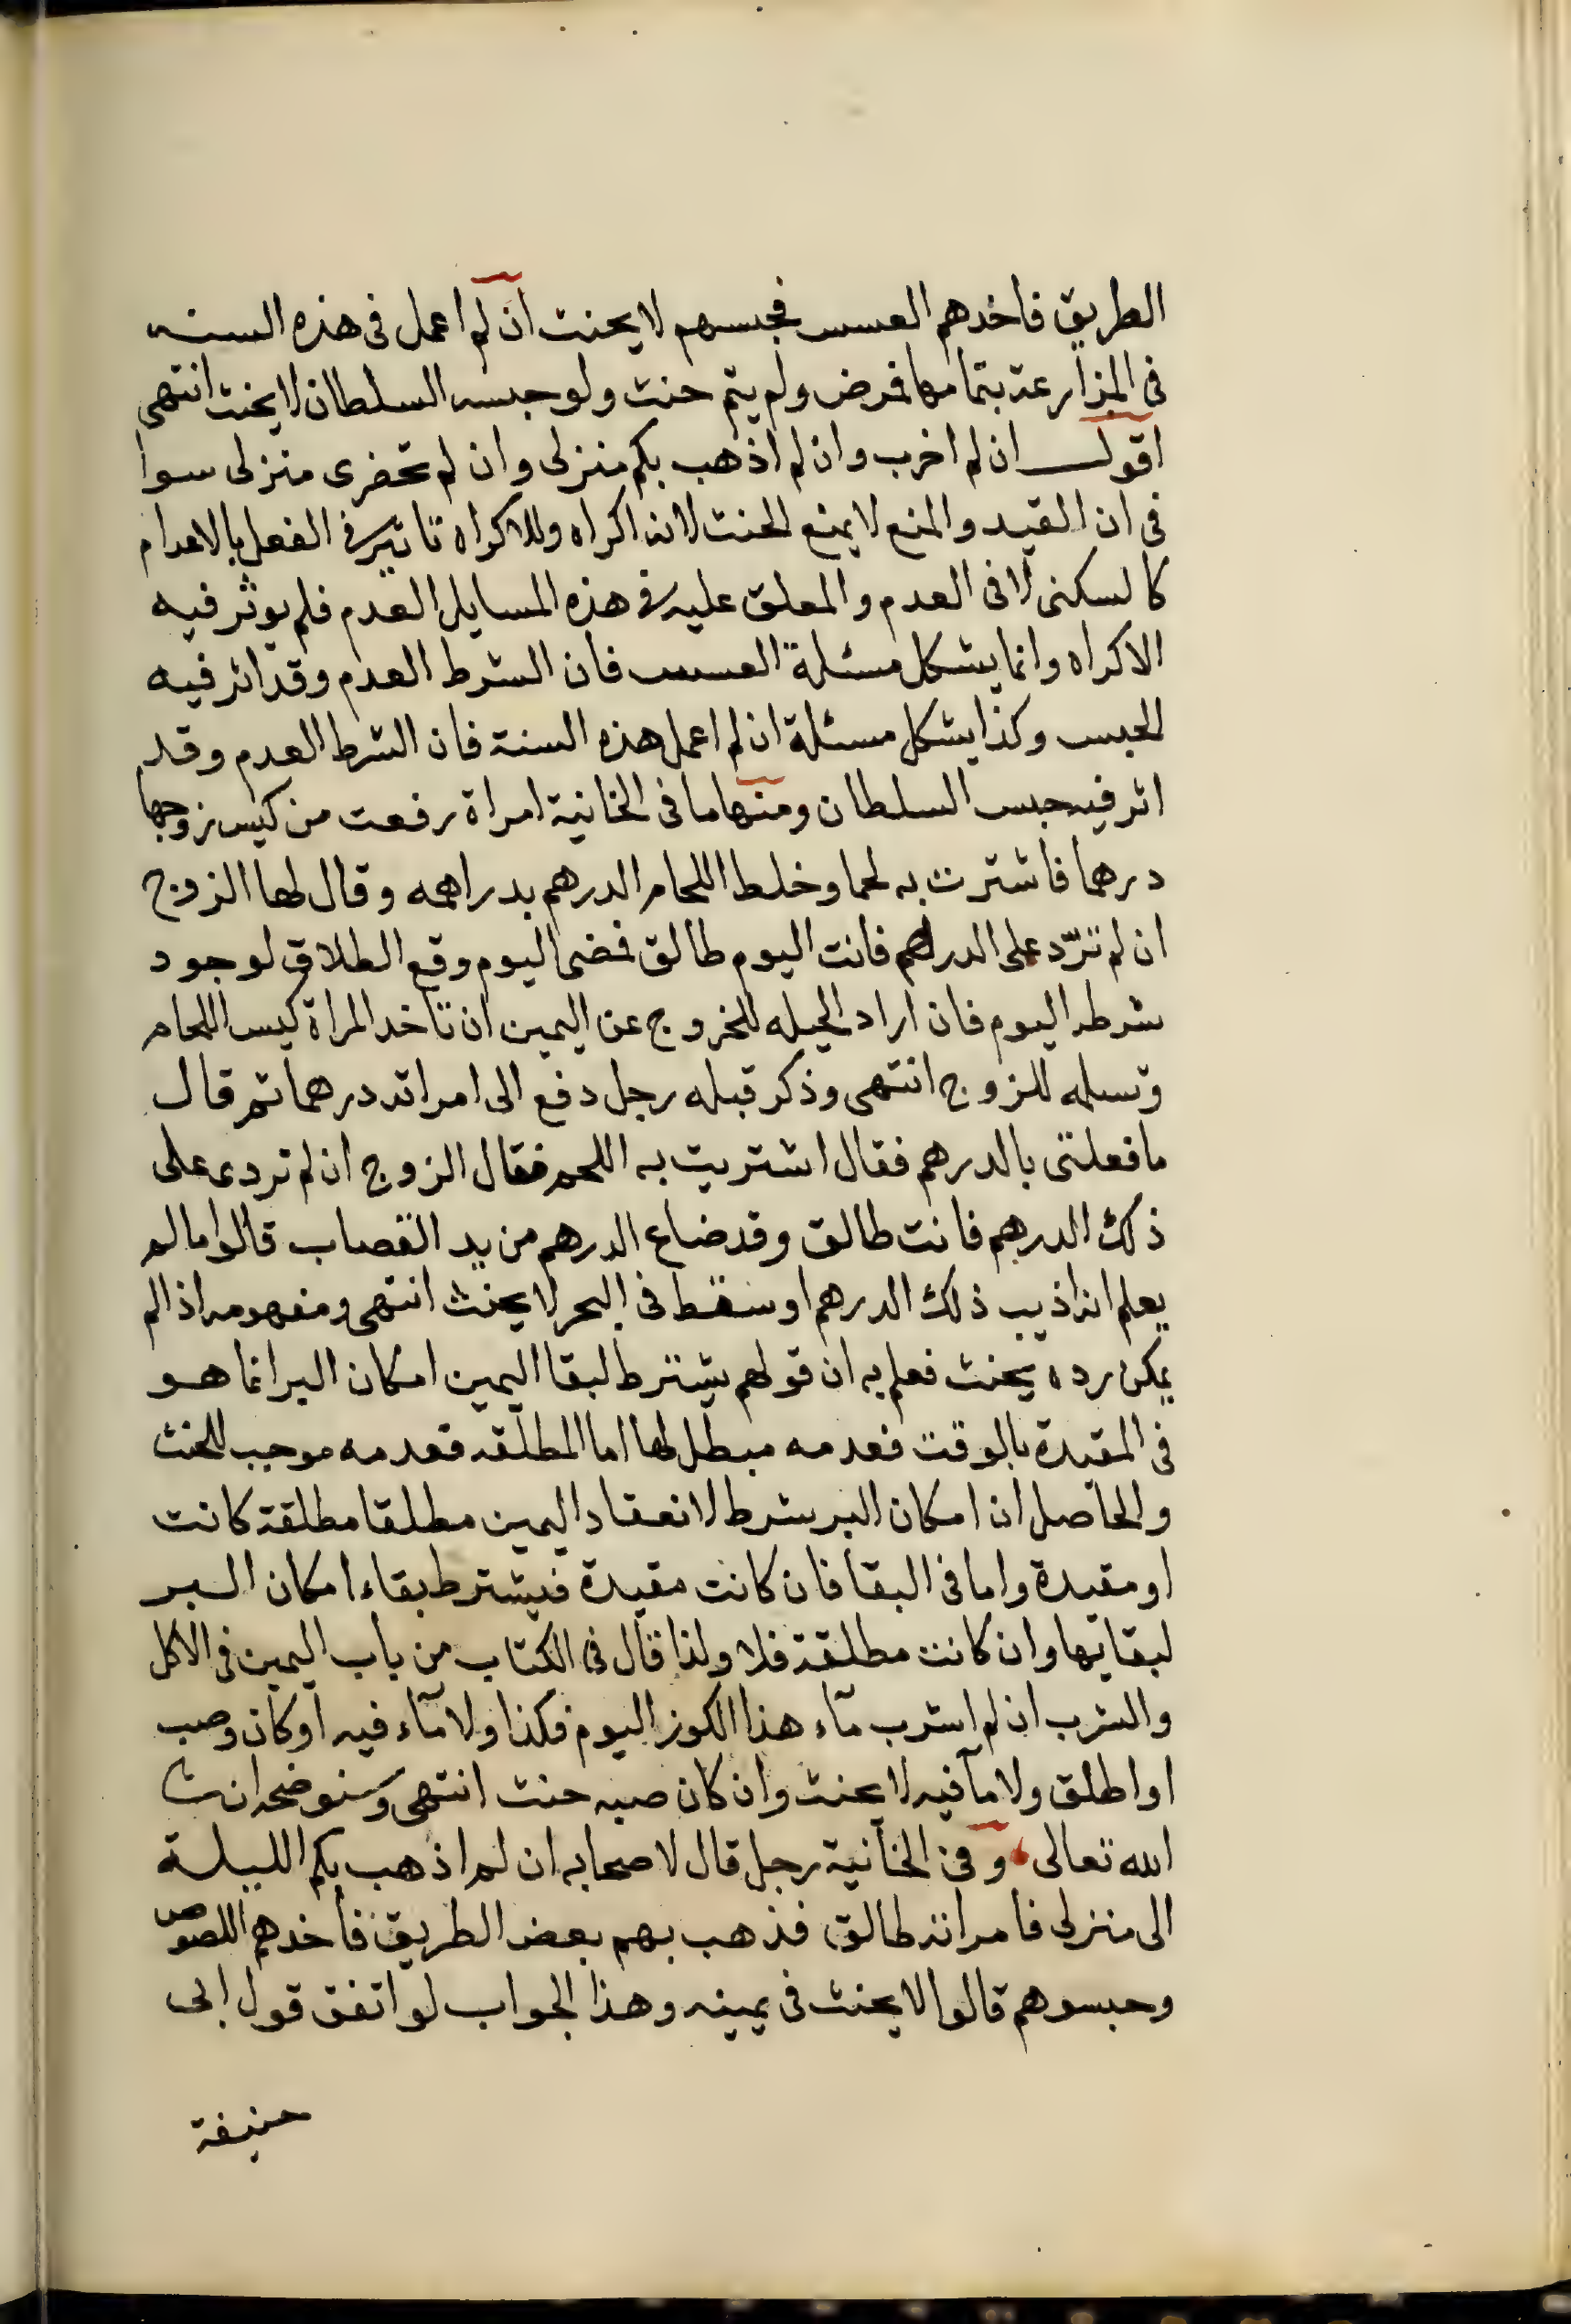 الطريق فاخدهم العسس فحبسهم لا يحنث ان لم اعمل فى هذه السنه
فى المزارعة بتمامها فمرض ولم يتم حنث ولو حبسه السلطان لا يحنث انتهى
اقول ان لم اخرب وان لم اذهب بكم منزلى وان لم تحضرى منزلى سوا
فى ان القيد والمنع لا يمنع الحنث لانه اكراه وللاكراه تاثير فى الفعل بالاعدام
كالسكنى لا فى العدم والمعلق عليه فى هذه المسايل العدم فلم يوثر فيه
الاكراه وانما يشكل مسئلة العسس فان الشرط العدم وقد اثر فيه
الحبس وكذا يشكل مسئلة ان لم اعمل هذه السنة فان الشرط العدم وقد
اثر فيه حبس السلطان ومنها ما فى الخانية امراة رفعت من كيس زوجها
درهما فاشترت به لحما وخلط اللحام الدرهم بدراهمه وقال لها الزوج
ان لم تردّ على الدرهم فانت اليوم طالق فمضى اليوم وقع الطلاق لوجود
شرطه اليوم فان اراد الحيله للخروج عن اليمين ان تاخد المراة كيس اللحام
وتسلمه للزوج انتهى وذكر قبله رجل دفع الى امراته درهما ثم قال
ما فعلتى بالدرهم فقال اشتريت به اللحم فقال الزوج ان لم تردى على
ذلك الدرهم فانت طالق وقد ضاع الدرهم من يد القصاب قالوا ما لم
يعلم انه اذيب ذلك الدرهم او سقط فى البحر لا يحنث انتهى ومفهومه اذا لم
يمكن رده يحنث فعلم به ان قولهم يشترط لبقا اليمين امكان البر انما هو
فى المقيدة بالوقت فعدمه مبطل لها اما المطلقه فعدمه موجب للحنث
والحاصل ان امكان البر شرط لانعقاد اليمين مطلقا مطلقة كانت
او مقيدة واما فى البقا فان كانت مقيدة فيشترط بقاء امكان البر
لبقايها وان كانت مطلقة فلا ولذا قال فى الكتاب من باب اليمين فى الاكل
والشرب ان لم اشرب مآء هذا الكوز اليوم فكذا ولا مآء فيه او كان وصب
او اطلق ولا مآ فيه لا يحنث وان كان صبه حنث انتهى وسنوضحه ان شا
الله تعالى وفى الخانية رجل قال لاصحابه ان لم اذهب بكم الليلة
الى منزلى فامراته طالق فذهب بهم بعض الطريق فاخدهم اللصوص
وحبسوهم قالوا لا يحنث فى يمينه وهذا الجواب لو اتفق قول ابى
حنيفة